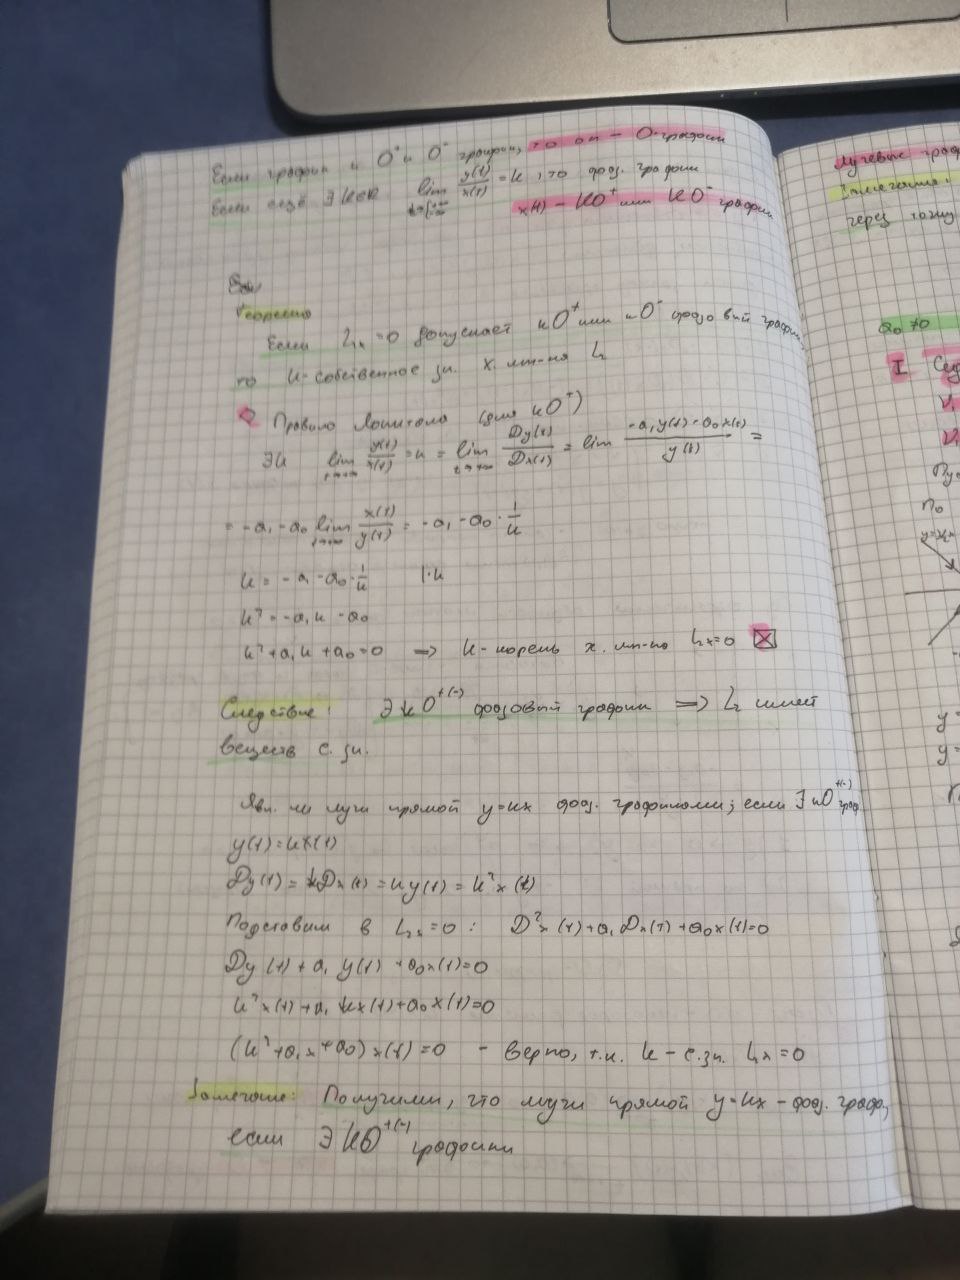 Если график и O⁺ и O⁻ график, то он - O-график
Если ещё ∃ k∈R lim y(t)/x(t) = k, то фаз. график
x(t) - kO⁺ или kO⁻ график
Теорема
Если Lx=0 допускает kO⁺ или kO⁻ фазовый график,
то k-собственное зн. х. мн-на L
Правило Лопиталя (для kO⁺)
∃ k lim t→+∞ y(t)/x(t) = k = lim t→+∞ Dy(t)/Dx(t) = lim (-a₁y(t)-a₀x(t))/y(t) =
= -a₁-a₀ lim t→+∞ x(t)/y(t) = -a₁-a₀·1/k
k = -a₁-a₀·1/k |·k
k² = -a₁k-a₀
k²+a₁k+a₀=0 ⟹ k-корень х. мн-на Lx=0 ☒
Следствие: ∃ kO⁺⁽⁻⁾ фазовый график ⟹ L имеет
веществ с. зн.
Явл. ли лучи прямой y=kx фаз. графиками; если ∃ kO⁺⁽⁻⁾ граф.
y(t)=kx(t)
Dy(t)=kDx(t)=ky(t)=k²x(t)
Подставим в Lx=0: D²x(t)+a₁Dx(t)+a₀x(t)=0
Dy(t)+a₁y(t)+a₀x(t)=0
k²x(t)+a₁kx(t)+a₀x(t)=0
(k²+a₁x+a₀)x(t)=0 - верно, т.к. k-с.зн. Lx=0
Замечание: Получили, что лучи прямой y=kx-фаз. граф.,
если ∃ kO⁺⁽⁻⁾ графики
Лучевые граф
Замечание:
через точку
a₀≠0
I